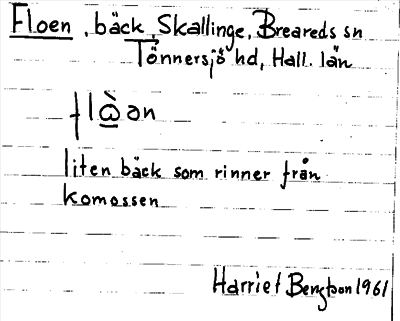 Floen, bäck, Skallinge, Breareds sn
Tönnersjö hd, Hall. län
flὰ̲ən
liten bäck som rinner från
komossen
Harriet Bengtson 1961